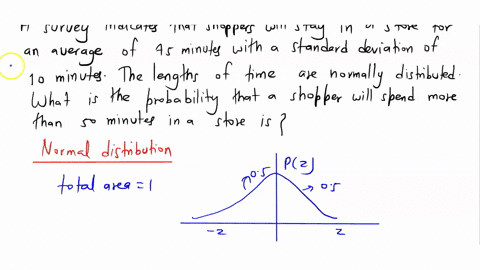 A survey indicates that shoppers will stay in a store for
an average of 45 minutes with a standard deviation of
10 minutes. The lengths of time are normally distibuted.
What is the probability that a shopper will spend more
than 50 minutes in a store is ?
Normal distribution
total area = 1
P(z)
0.5
0.5
-z
z